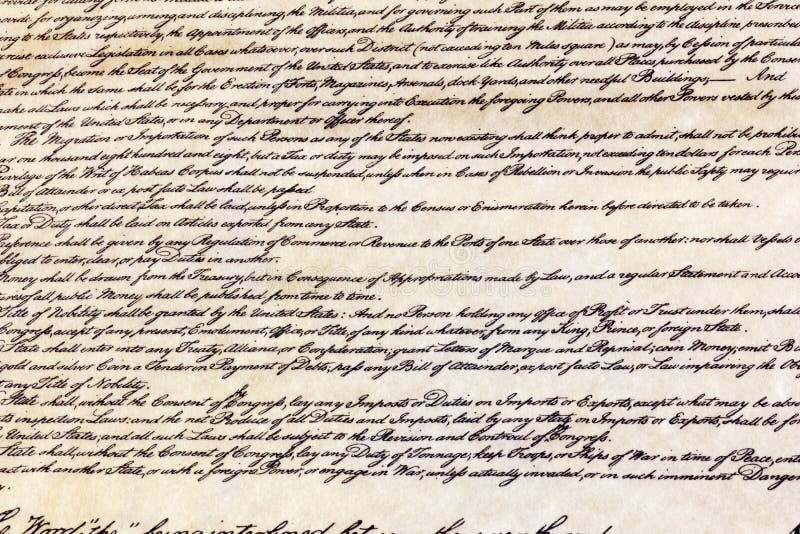 rovide for calling forth
vide for organizing, arming, and disciplining, the Militia, and for governing such Part of them as may be employed in the Service
ng to the States respectively, the Appointment of the Officers, and the Authority of training the Militia according to the discipline prescribed
ercise exclusive Legislation in all Cases whatsoever, over such District (not exceeding ten Miles square) as may, by Cession of particular
f Congress, become the Seat of the Government of the United States, and to exercise like Authority over all Places purchased by the Consent
te in which the Same shall be for the Erection of Forts, Magazines, Arsenals, dock-Yards, and other needful Buildings;— And
make all Laws which shall be necessary and proper for carrying into Execution the foregoing Powers, and all other Powers vested by this
rnment of the United States, or in any Department or Officer thereof.
The Migration or Importation of such Persons as any of the States now existing shall think proper to admit, shall not be prohibi
ar one thousand eight hundred and eight, but a Tax or duty may be imposed on such Importation, not exceeding ten dollars for each Per
Privilege of the Writ of Habeas Corpus shall not be suspended, unless when in Cases of Rebellion or Invasion the public Safety may requir
Bill of Attainder or ex post facto Law shall be passed
Capitation, or other direct, Tax shall be laid, unless in Proportion to the Census or Enumeration herein before directed to be taken.
Tax or Duty shall be laid on Articles exported from any State.
Preference shall be given by any Regulation of Commerce or Revenue to the Ports of one State over those of another: nor shall Vessels b
bliged to enter, clear, or pay Duties in another.
Money shall be drawn from the Treasury, but in Consequence of Appropriations made by Law, and a regular Statement and Acco
tures of all public Money shall be published from time to time.
Title of Nobility shall be granted by the United States: And no Person holding any Office of Profit or Trust under them, shall
Congress, accept of any present, Emolument, Office, or Title, of any kind whatever, from any King, Prince, or foreign State.
State shall enter into any Treaty, Alliance, or Confederation; grant Letters of Marque and Reprisal; coin Money; emit B
gold and silver Coin a Tender in Payment of Debts; pass any Bill of Attainder, ex post facto Law, or Law impairing the Ob
t any Title of Nobility.
State shall, without the Consent of Congress, lay any Imposts or Duties on Imports or Exports, except what may be abso
ts inspection Laws: and the net Produce of all Duties and Imposts, laid by any State on Imports or Exports, shall be for
United States; and all such Laws shall be subject to the Revision and Controul of Congress.
State shall, without the Consent of Congress, lay any Duty of Tonnage, keep Troops, or Ships of War in time of Peace, ent
act with another State, or with a foreign Power, or engage in War, unless actually invaded, or in such imminent Danger
y.
Word "the," being interlined between the seventh and